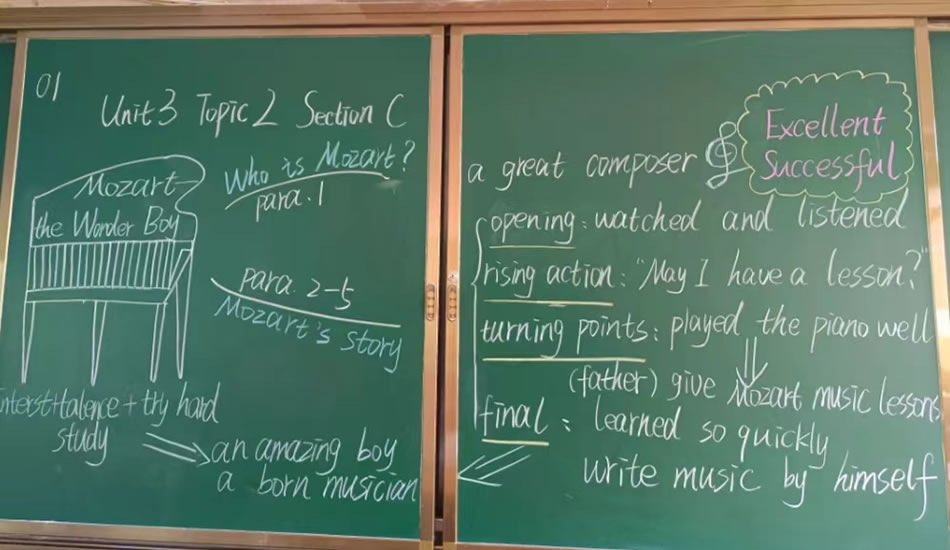 01
Unit 3 Topic 2 Section C
Mozart-
the Wonder Boy
Who is Mozart?
para. 1
para. 2-5
Mozart's story
interst+talence+try hard
study
an amazing boy
a born musician
Excellent
Successful
a great composer
opening: watched and listened
rising action: "May I have a lesson?"
turning points: played the piano well
(father) give Mozart music lessons
final: learned so quickly
write music by himself